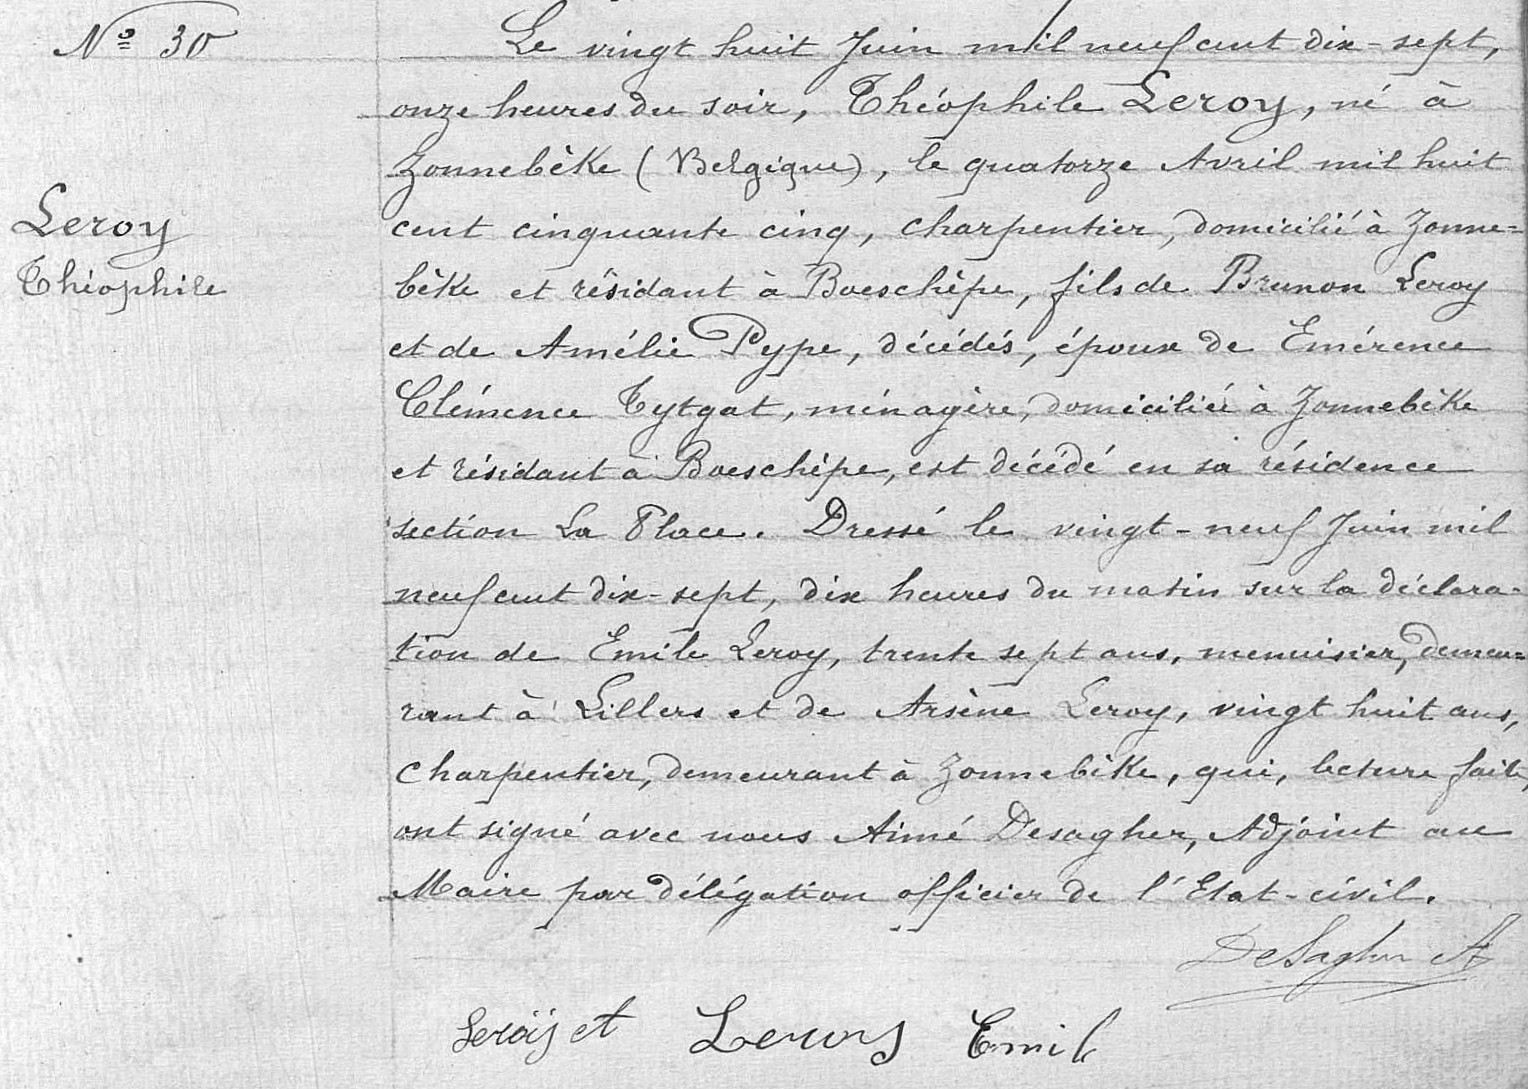 Nº 30
Le vingt huit Juin mil neuf cent dix-sept,
onze heures du soir, Théophile Leroy, né à
Zonnebèke (Belgique), le quatorze Avril mil huit
Leroy
Théophile
cent cinquante cinq, charpentier, domicilié à Zonne=
bèke et résidant à Boeschèpe, fils de Brunon Leroy
et de Amélie Pype, décédés, époux de Emérence
Clémence Tytgat, ménagère, domiciliée à Zonnebèke
et résidant à Boeschèpe, est décédé en sa résidence
section La Place. Dressé le vingt-neuf Juin mil
neuf cent dix-sept, dix heures du matin sur la déclara-
tion de Emile Leroy, trente sept ans, menuisier, demeu=
rant à Lillers et de Arsène Leroy, vingt huit ans,
charpentier, demeurant à Zonnebèke, qui, lecture faite,
ont signé avec nous Aimé Desagher, Adjoint au
Maire par délégation officier de l'Etat-civil.
DeSagher A
Leroÿ et Leroy Emil